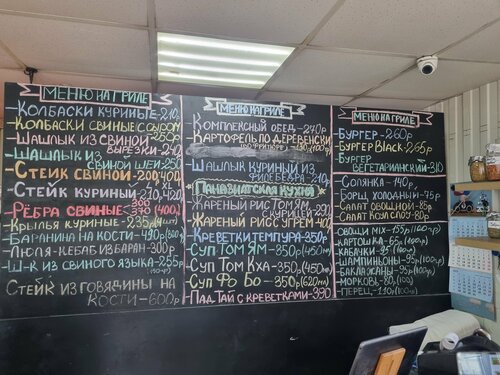 МЕНЮ НА ГРИЛЕ
-КОЛБАСКИ КУРИНЫЕ-210
-КОЛБАСКИ СВИНЫЕ С СЫРОМ
250р
-ШАШЛЫК ИЗ СВИНОЙ
ВЫРЕЗКИ-240р
-ШАШЛЫК ИЗ
СВИНОЙ ШЕИ-250
-СТЕЙК СВИНОЙ-200/400
-СТЕЙК КУРИНЫЙ
-РЁБРА СВИНЫЕ
-КРЫЛЬЯ КУРИНЫЕ-235р
-БАРАНИНА НА КОСТИ-
-ЛЮЛЯ-КЕБАБ ИЗ БАРАН-300р
-Ш-К ИЗ СВИНОГО ЯЗЫКА-255р
-СТЕЙК ИЗ ГОВЯДИНЫ НА
КОСТИ-600р
МЕНЮ НА ГРИЛЕ
-КОМПЛЕКСНЫЙ ОБЕД-240р
-КАРТОФЕЛЬ ПО ДЕРЕВЕНСКИ
-ШАШЛЫК КУРИНЫЙ ИЗ
ПАНАЗИАТСКАЯ КУХНЯ
-ЖАРЕНЫЙ РИС ТОМ ЯМ
С КУРИЦЕЙ
-ЖАРЕНЫЙ РИС С УГРЁМ-440
-КРЕВЕТКИ ТЕМПУРА-350р
-СУП ТОМ ЯМ-350р(450мл)
-СУП ТОМ КХА-350р(450мл)
-СУП ФО БО-350р(620мл)
-ПАД ТАЙ С КРЕВЕТКАМИ-390
МЕНЮ НА ГРИЛЕ
-БУРГЕР-260р
-БУРГЕР BLACK-265р
-БУРГЕР
ВЕГЕТАРИАНСКИЙ-310
-СОЛЯНКА-140р
-БОРЩ ХОЛОДНЫЙ-75р
-САЛАТ ОВОЩНОЙ-85р
-САЛАТ КОУЛ СЛОУ-80р
-ОВОЩИ MIX-155р(100г)
-КАРТОШКА-65р(100г)
-КАБАЧКИ-95(100г)
-ШАМПИНЬОНЫ-95р(100г)
-БАКЛАЖАНЫ-95р(100г)
-МОРКОВЬ-80р(100г)
-ПЕРЕЦ-110р(100г)